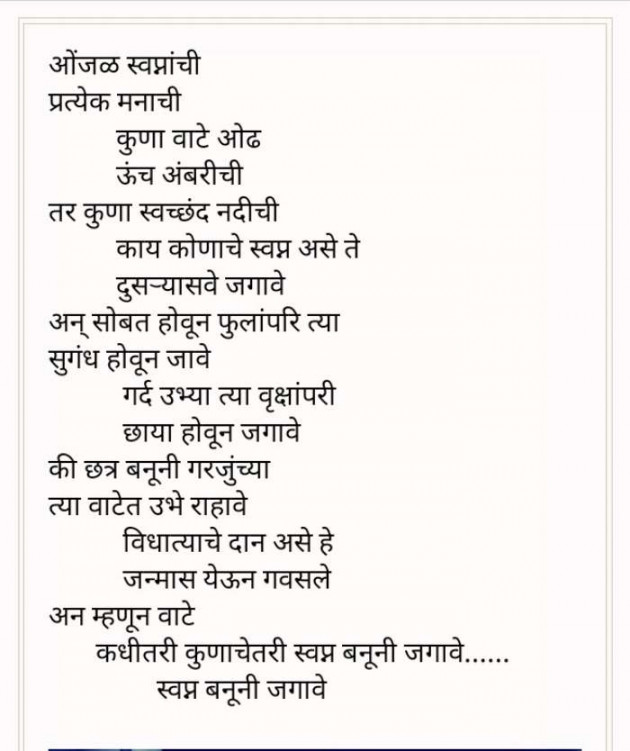 ओंजळ स्वप्नांची
प्रत्येक मनाची
कुणा वाटे ओढ
ऊंच अंबरीची
तर कुणा स्वच्छंद नदीची
काय कोणाचे स्वप्न असे ते
दुसऱ्यासवे जगावे
अन् सोबत होवून फुलांपरि त्या
सुगंध होवून जावे
गर्द उभ्या त्या वृक्षांपरी
छाया होवून जगावे
की छत्र बनूनी गरजुंच्या
त्या वाटेत उभे राहावे
विधात्याचे दान असे हे
जन्मास येऊन गवसले
अन म्हणून वाटे
कधीतरी कुणाचेतरी स्वप्न बनूनी जगावे......
स्वप्न बनूनी जगावे